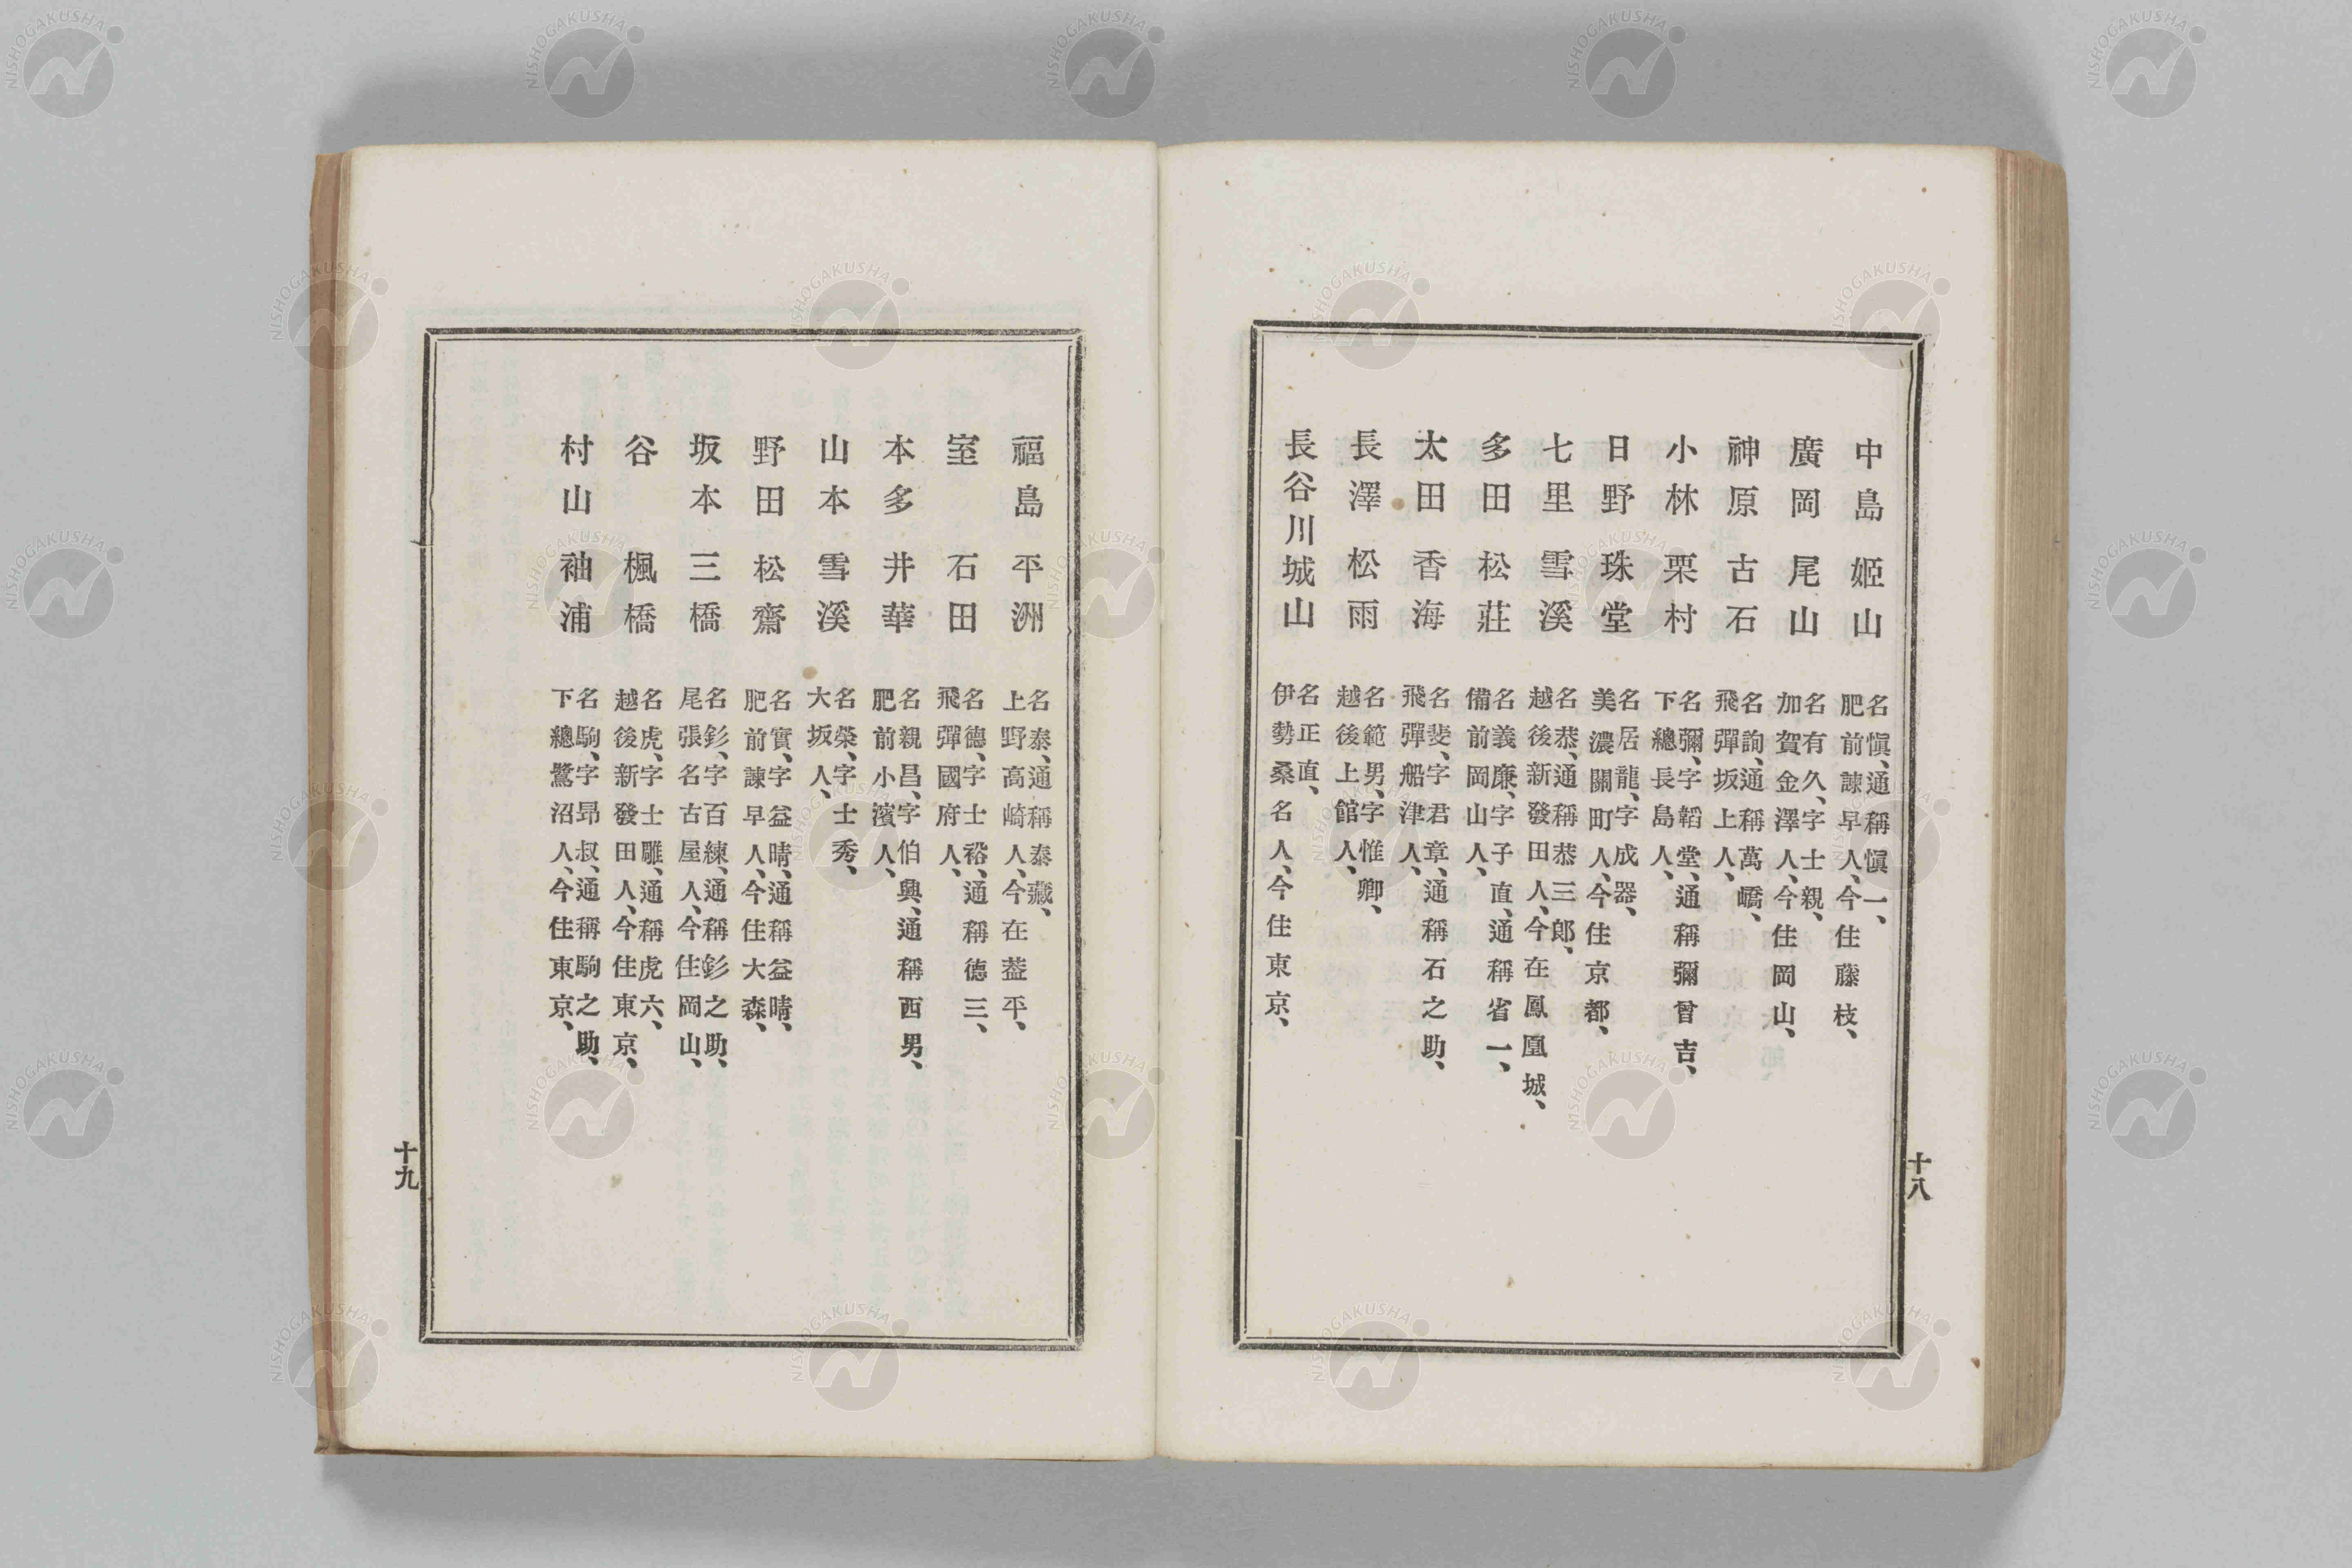 中島姬山
名愼、通稱愼一、
肥前諫早人、今住藤枝、
廣岡尾山
名有久、字士親、
加賀金澤人、今住岡山、
神原古石
名詢、通稱萬嶠、
飛彈坂上人、
小林栗村
名彌、字韜堂、通稱彌曾吉、
下總長島人、
日野珠堂
名居龍、字成器、
美濃關町人、今住京都、
七里雪溪
名恭、通稱恭三郎、
越後新發田人、今在鳳凰城、
多田松莊
名義廉、字子直、通稱省一、
備前岡山人、
太田香海
名斐、字君章、通稱石之助、
飛彈船津人、
長澤松雨
名範男、字惟卿、
越後上館人、
長谷川城山
名正直、
伊勢桑名人、今住東京、
十八
福島平洲
名泰、通稱泰藏、
上野高崎人、今在蓋平、
室石田
名德、字士裕、通稱德三、
飛彈國府人、
本多井華
名親昌、字伯興、通稱酉男、
肥前小濱人、
山本雪溪
名榮、字士秀、
大坂人、
野田松齋
名實、字益晴、通稱益晴、
肥前諫早人、今住大森、
坂本三橋
名釤、字百練、通稱釤之助、
尾張名古屋人、今住岡山、
谷楓橋
名虎、字士雕、通稱虎六、
越後新發田人、今住東京、
村山袖浦
名駒、字昂叔、通稱駒之助、
下總鷺沼人、今住東京、
十九
NISHOGAKUSHA